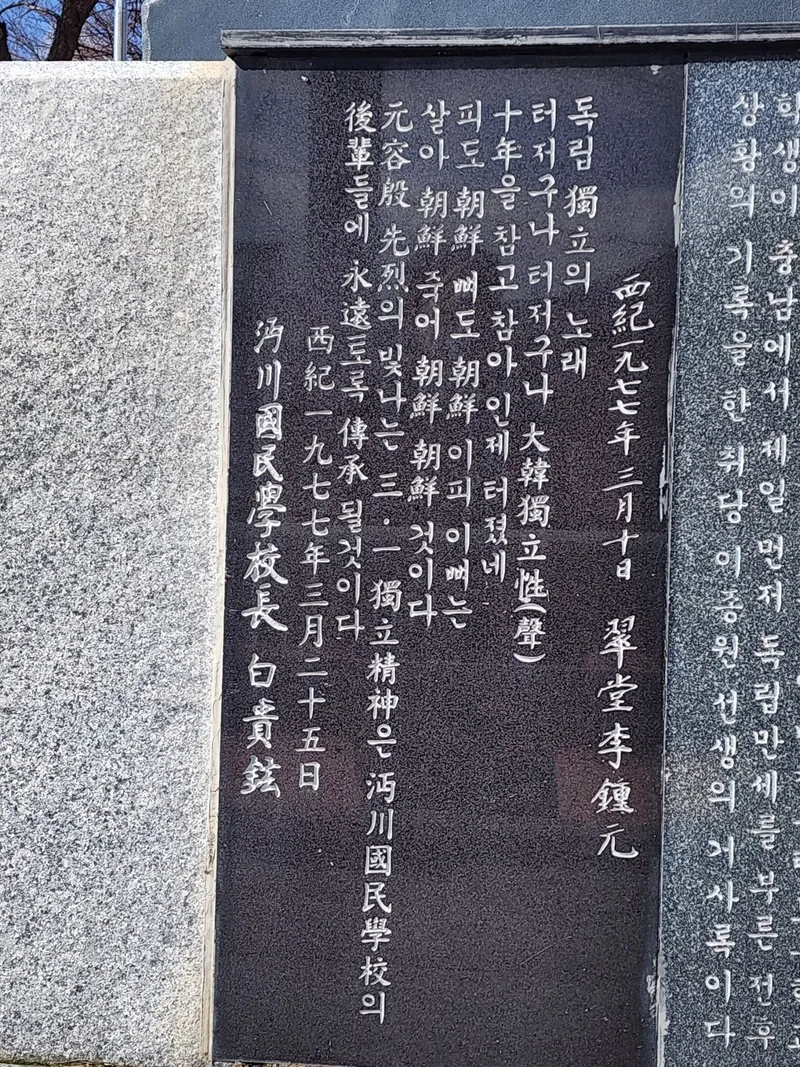 학생이 충남에서 제일 먼저 독립만세를 부른 전후
상황의 기록을 한 취당 이종원 선생의 거사록이다
西紀一九七七年 三月十日 翠堂李鍾元
독립 獨立의 노래
터저구나 터저구나 大韓獨立性(聲)
十年을 참고 참아 인제 터졌네
피도 朝鮮 뼈도 朝鮮 이피 이뼈는
살아 朝鮮 죽어 朝鮮 朝鮮 것이다
元容殷 先烈의 빛나는 三·一 獨立精神은 沔川國民學校의
後輩들에 永遠토록 傳承 될것이다
西紀一九七七年三月二十五日
沔川國民學校長 白貴鉉